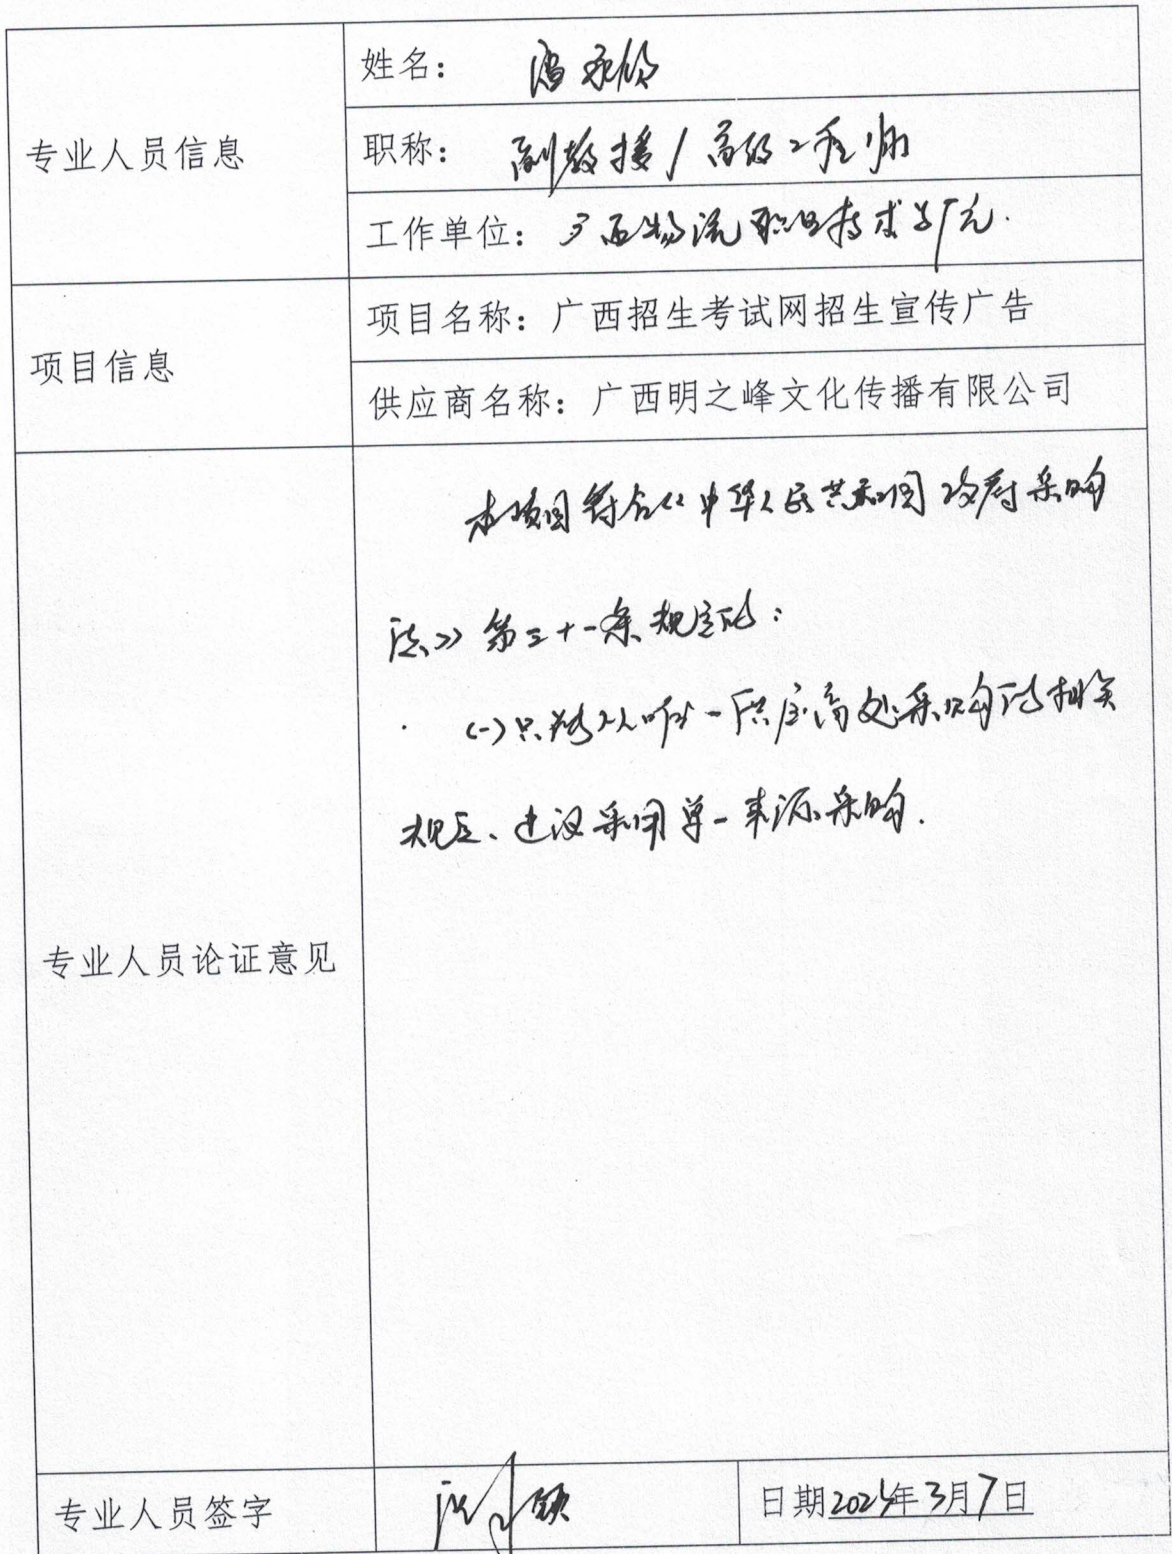 专业人员信息
姓名：
职称：副教授/高级工程师
工作单位：广西物流职业技术学院.
项目信息
项目名称：广西招生考试网招生宣传广告
供应商名称：广西明之峰文化传播有限公司
专业人员论证意见
本项目符合《中华人民共和国政府采购
法》第三十一条规定的：
(一)只能从唯一供应商处采购的相关
规定、建议采用单一来源采购.
专业人员签字
日期2024年3月7日